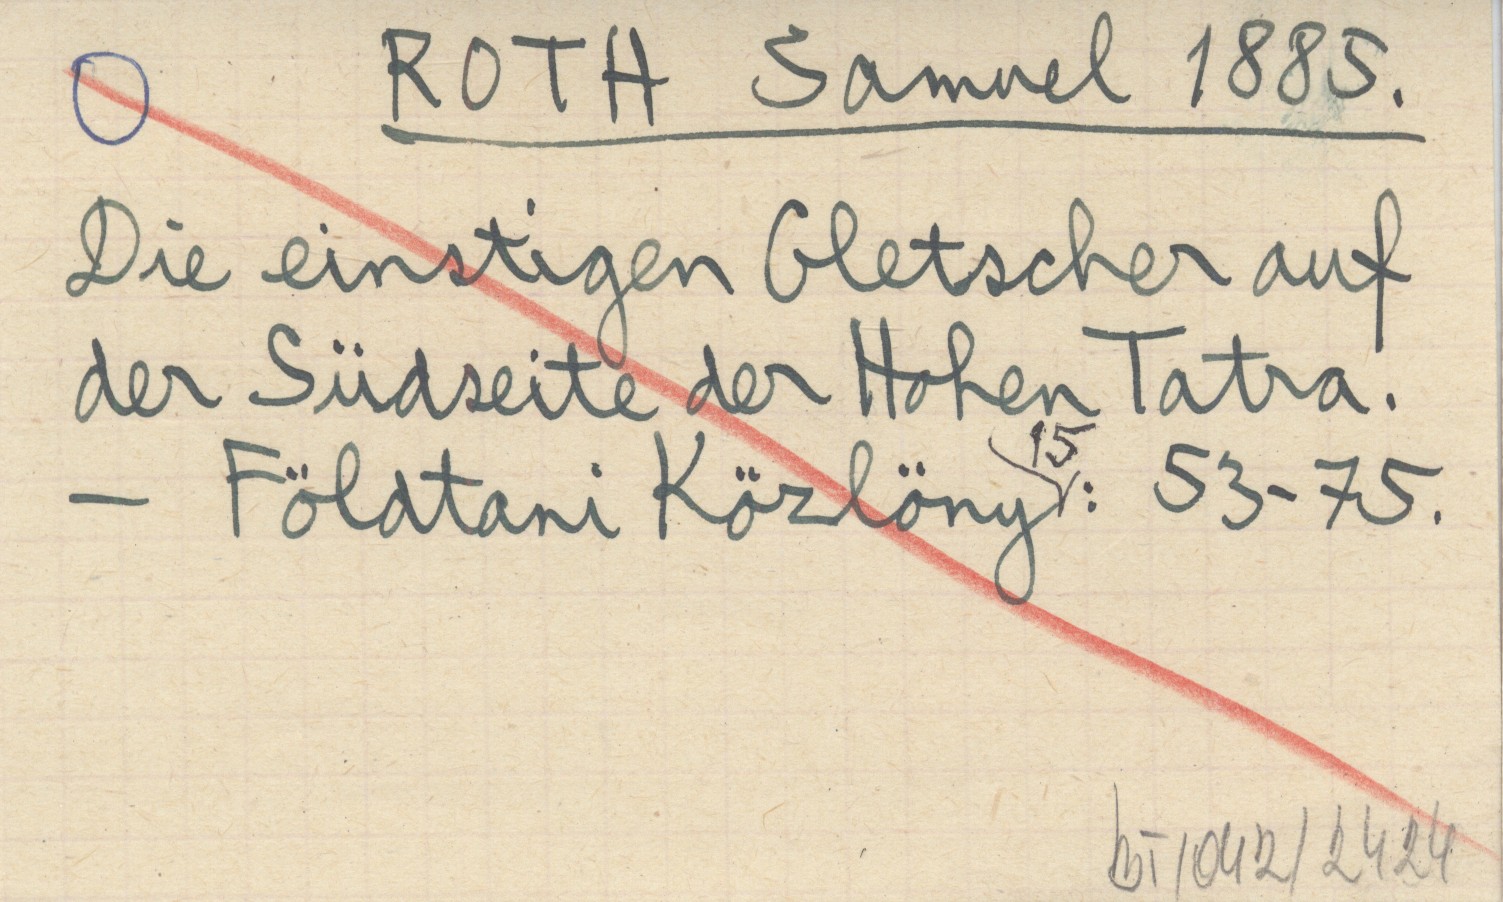 ROTH Samuel 1885.
Die einstigen Gletscher auf
der Südseite der Hohen Tatra.
15
— Földtani Közlöny: 53-75.
BT/042/2424